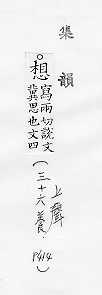 集韻
想 寫兩切說文
冀思也文四
(三十六養.
上聲
P414)